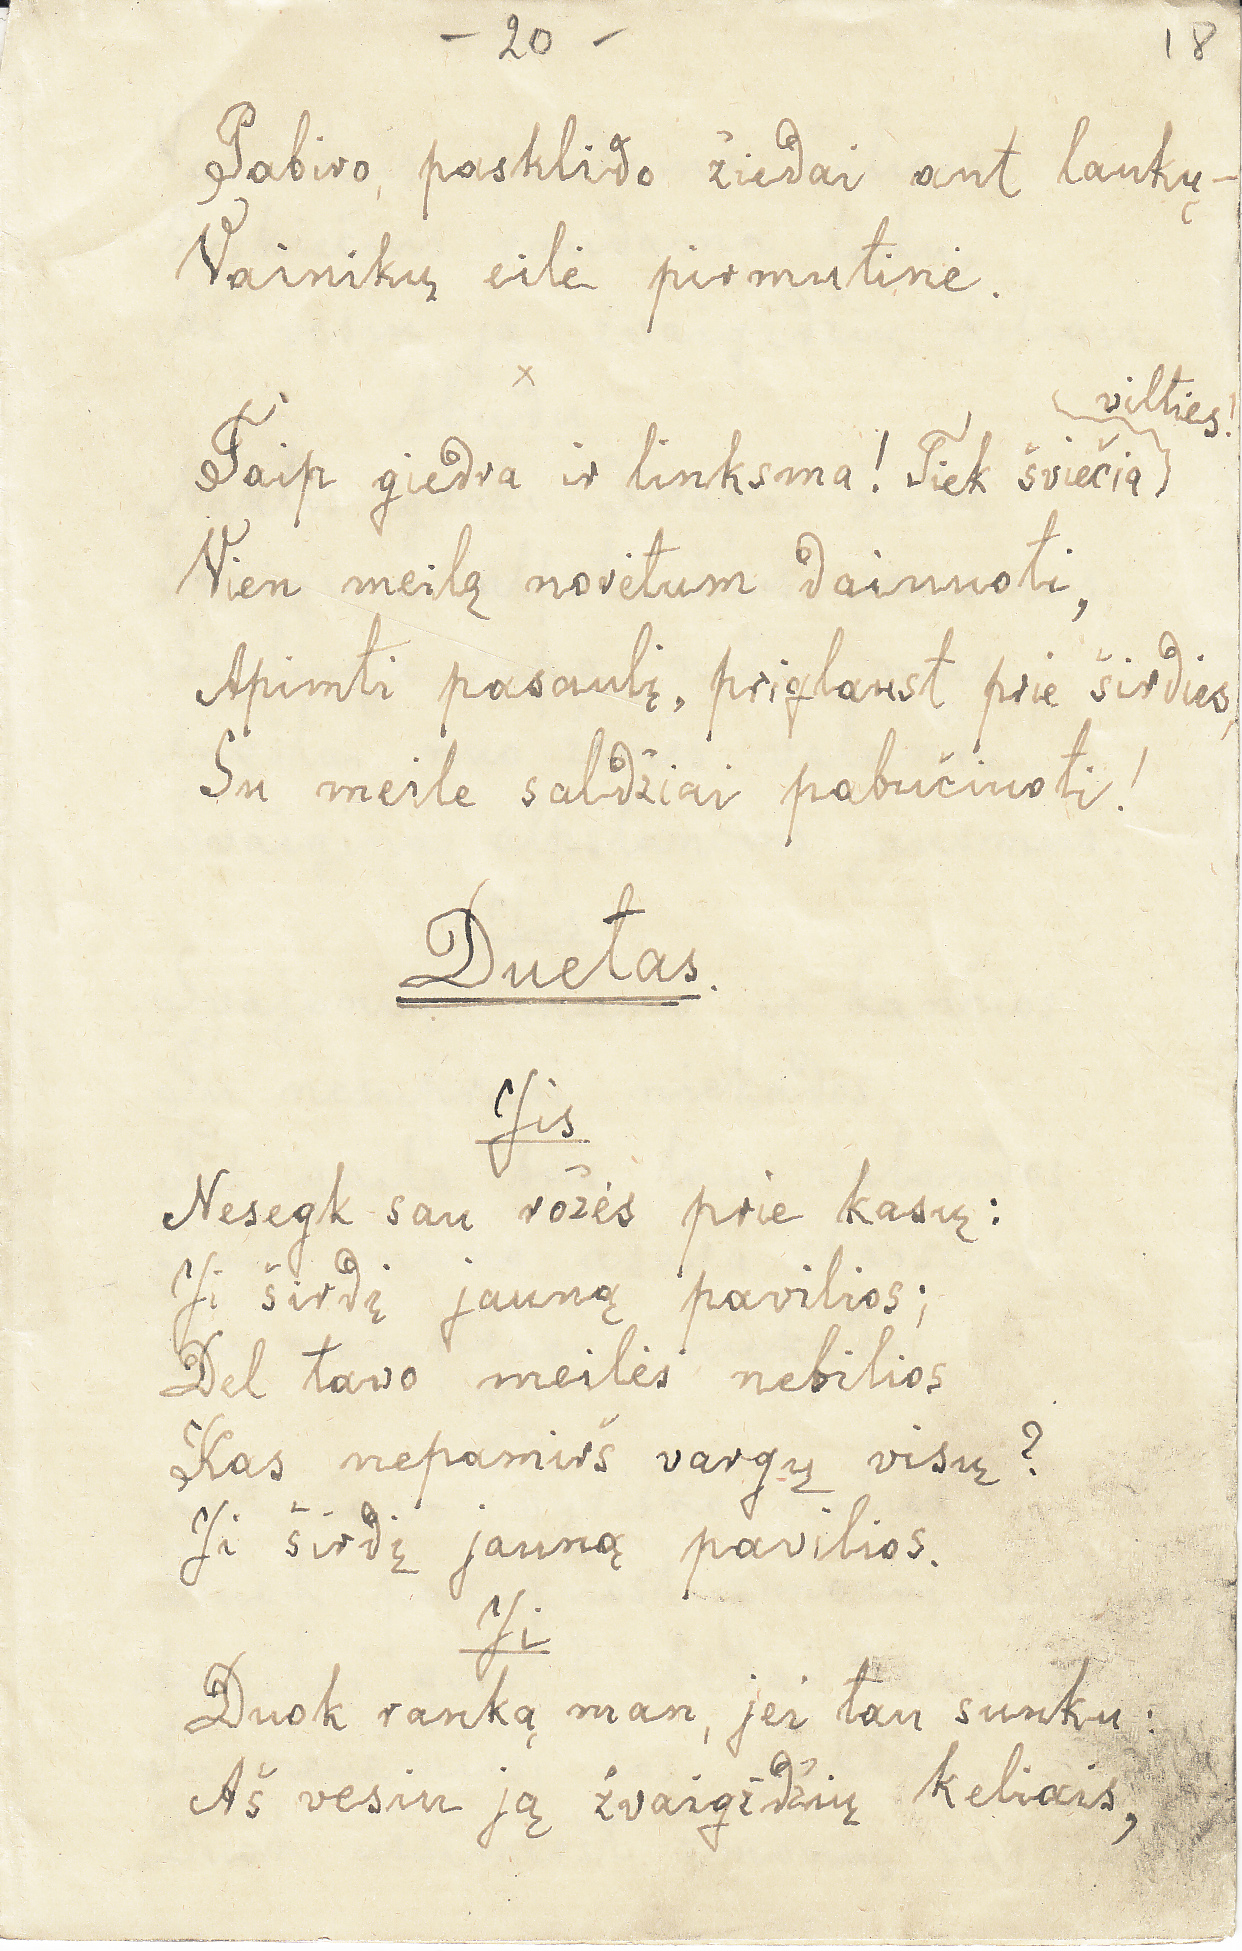 - 20 -
18
Pabiro, pasklido žiedai ant laukų-
Vainikų eilė pirmutinė.
x
vilties!
Taip giedra ir linksma! Tiek šviečia
Vien meilę norėtum dainuoti,
Apimti pasaulį, priglaust prie širdies,
Su meile saldžiai pabučiuoti!
Duetas.
Jis
Nesegk sau rožės prie kasų:
Ji širdį jauną pavilios;
Del tavo meilės nebilios
Kas nepamirš vargų visų?
Ji širdį jauną pavilios.
Ji
Duok ranką man, jei tau sunku:
Aš vesiu ją žvaigždžių keliais,